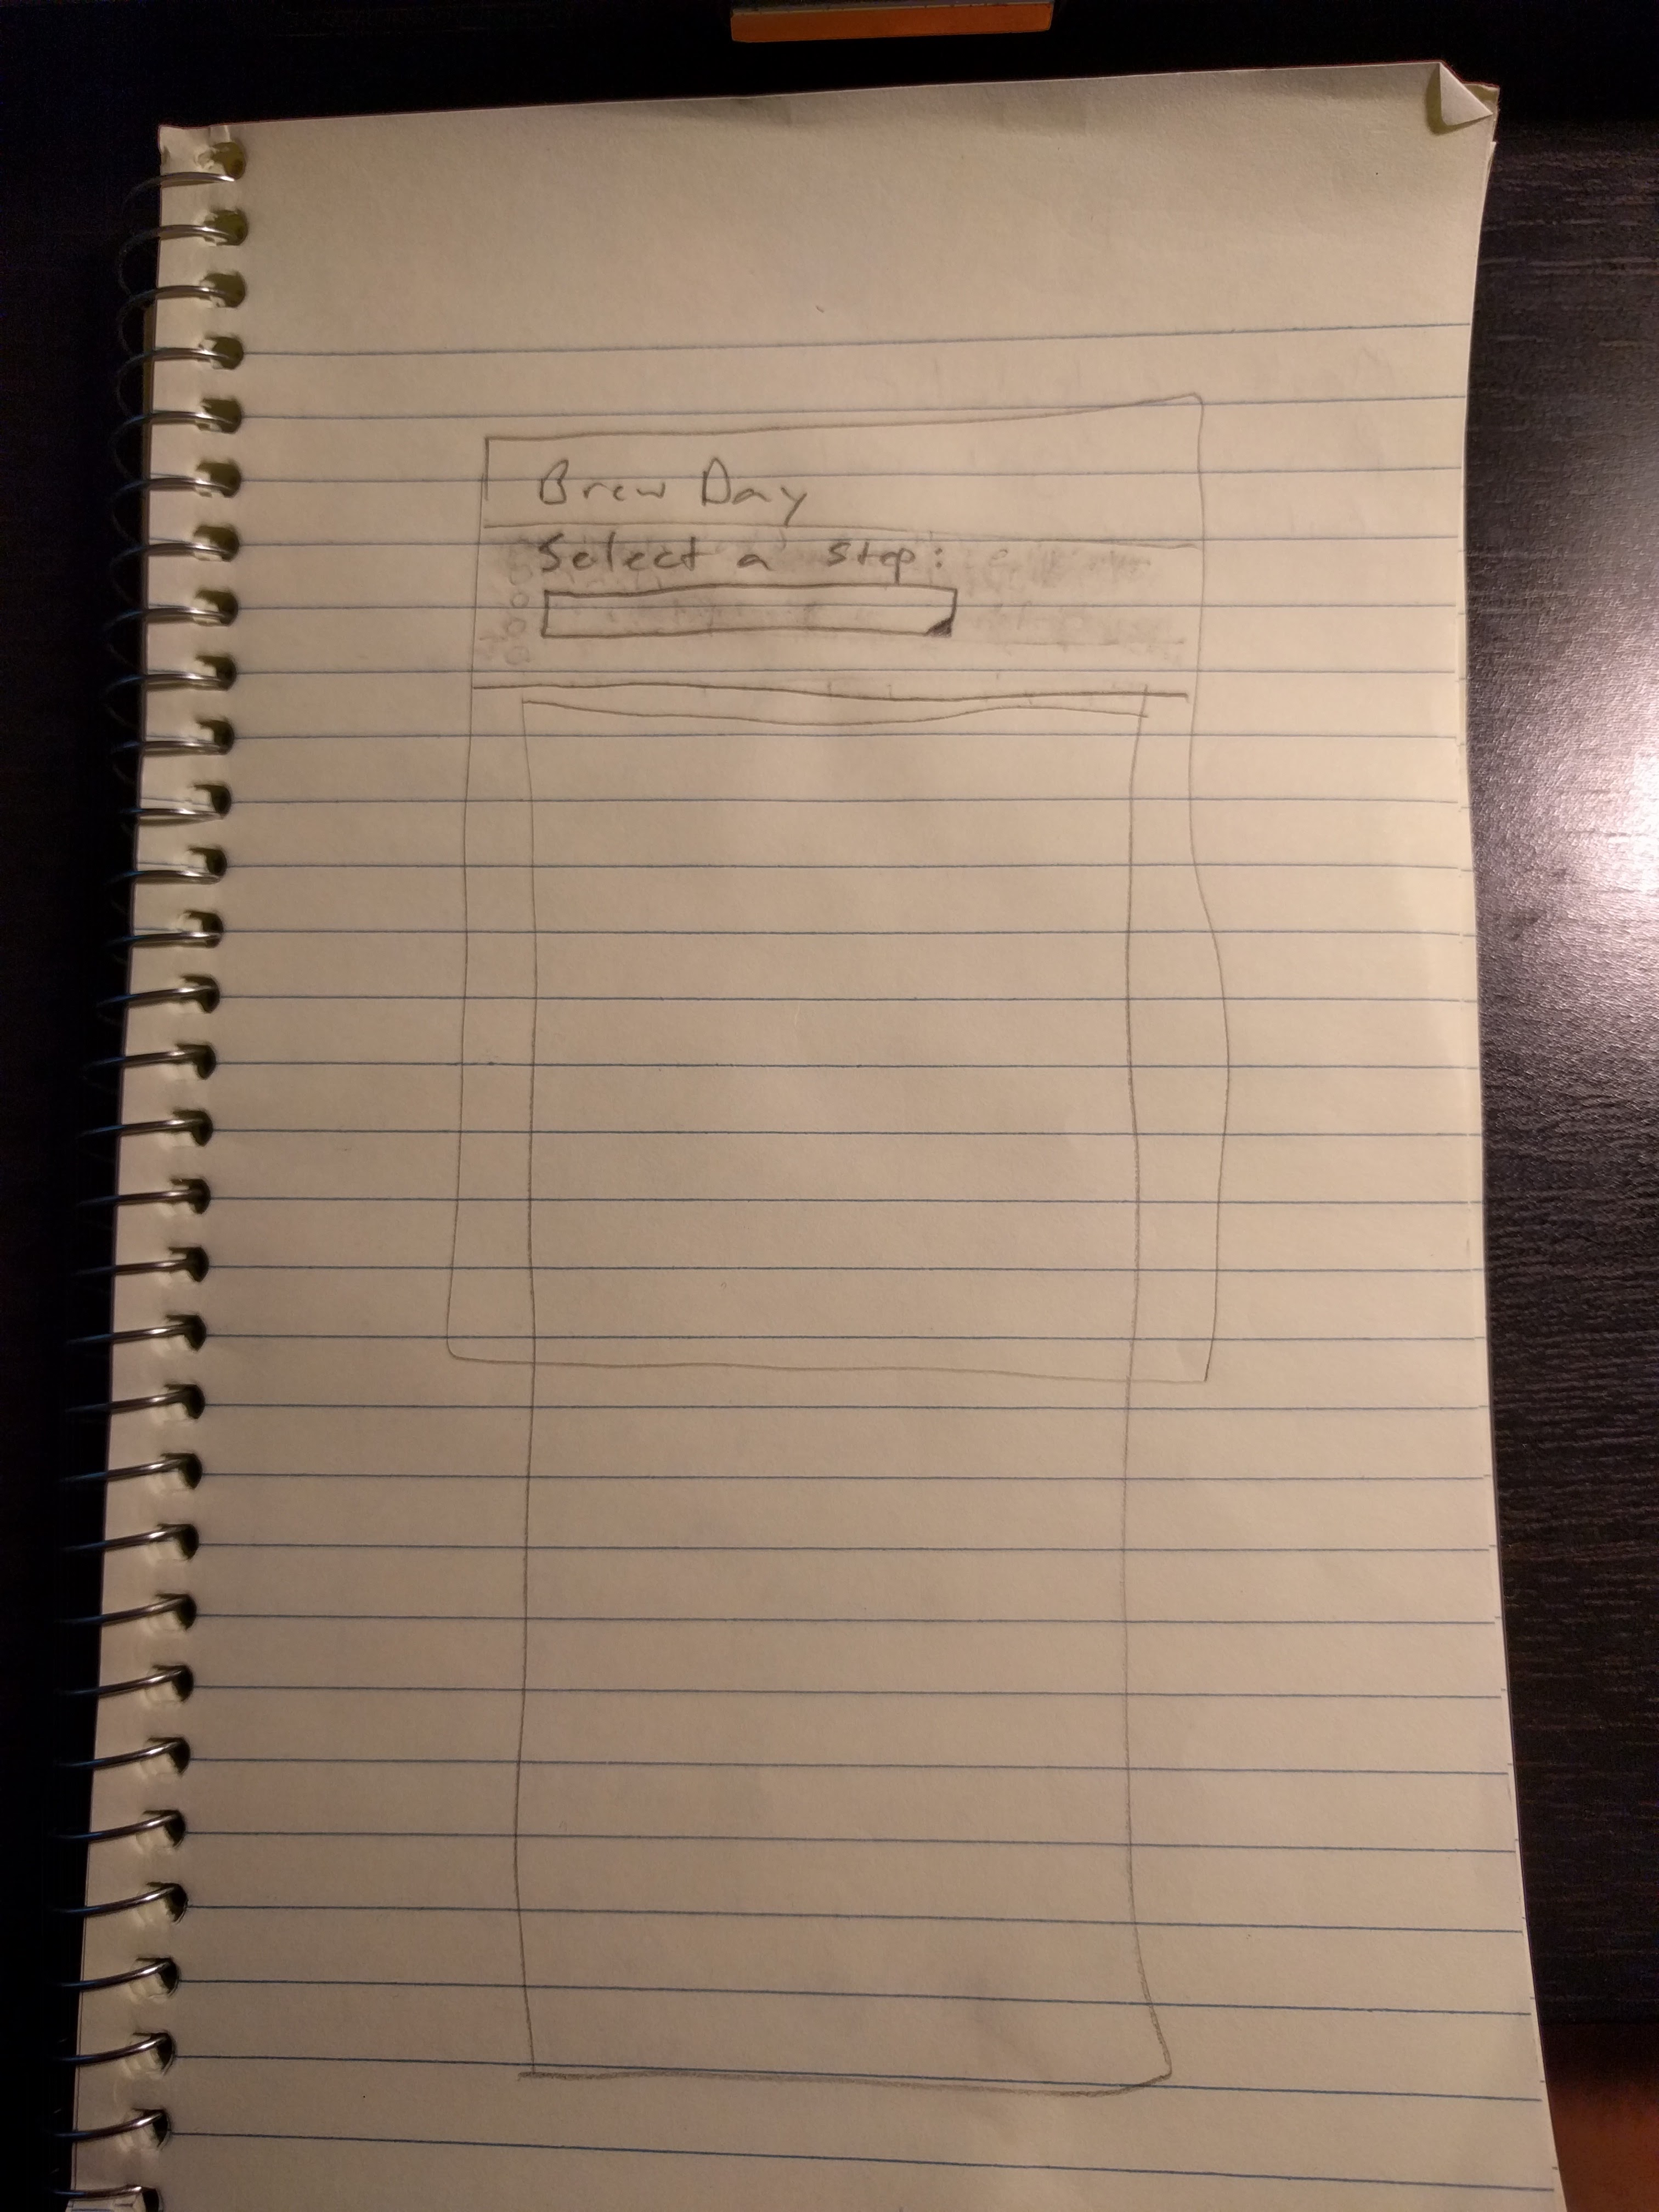 Brew Day
Select a step: